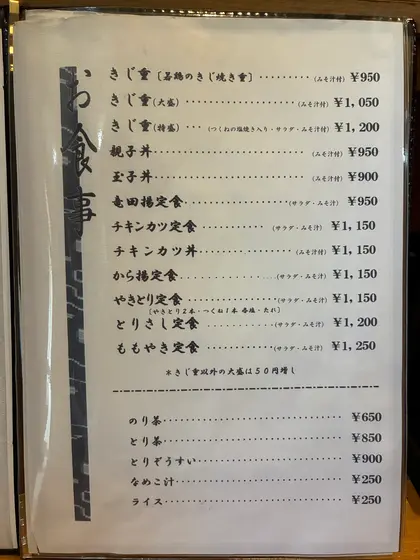 お食事
きじ重〔若鶏のきじ焼き重〕・・・・・・・・・(みそ汁付)¥950
きじ重(大盛)・・・・・・・・・・・・・・・・・(みそ汁付)¥1,050
きじ重(特盛)・・・(つくねの塩焼き入り・サラダ・みそ汁付)¥1,200
親子丼・・・・・・・・・・・・・・・・・・・・(みそ汁付)¥950
玉子丼・・・・・・・・・・・・・・・・・・・・(みそ汁付)¥900
竜田揚定食・・・・・・・・・・・・・・(サラダ・みそ汁付)¥950
チキンカツ定食・・・・・・・・・・・(サラダ・みそ汁付)¥1,150
チキンカツ丼・・・・・・・・・・・・・・・・・(みそ汁付)¥1,150
から揚定食・・・・・・・・・・・・・(サラダ・みそ汁付)¥1,150
やきとり定食・・・・・・・・・・・・(サラダ・みそ汁付)¥1,150
〔やきとり2本・つくね1本 各塩・たれ〕
とりさし定食・・・・・・・・・・・・(サラダ・みそ汁付)¥1,200
ももやき定食・・・・・・・・・・・・(サラダ・みそ汁付)¥1,250
*きじ重以外の大盛は50円増し
のり茶・・・・・・・・・・・・・・・・・・・・¥650
とり茶・・・・・・・・・・・・・・・・・・・・¥850
とりぞうすい・・・・・・・・・・・・・・・・・¥900
なめこ汁・・・・・・・・・・・・・・・・・・・¥250
ライス・・・・・・・・・・・・・・・・・・・・¥250